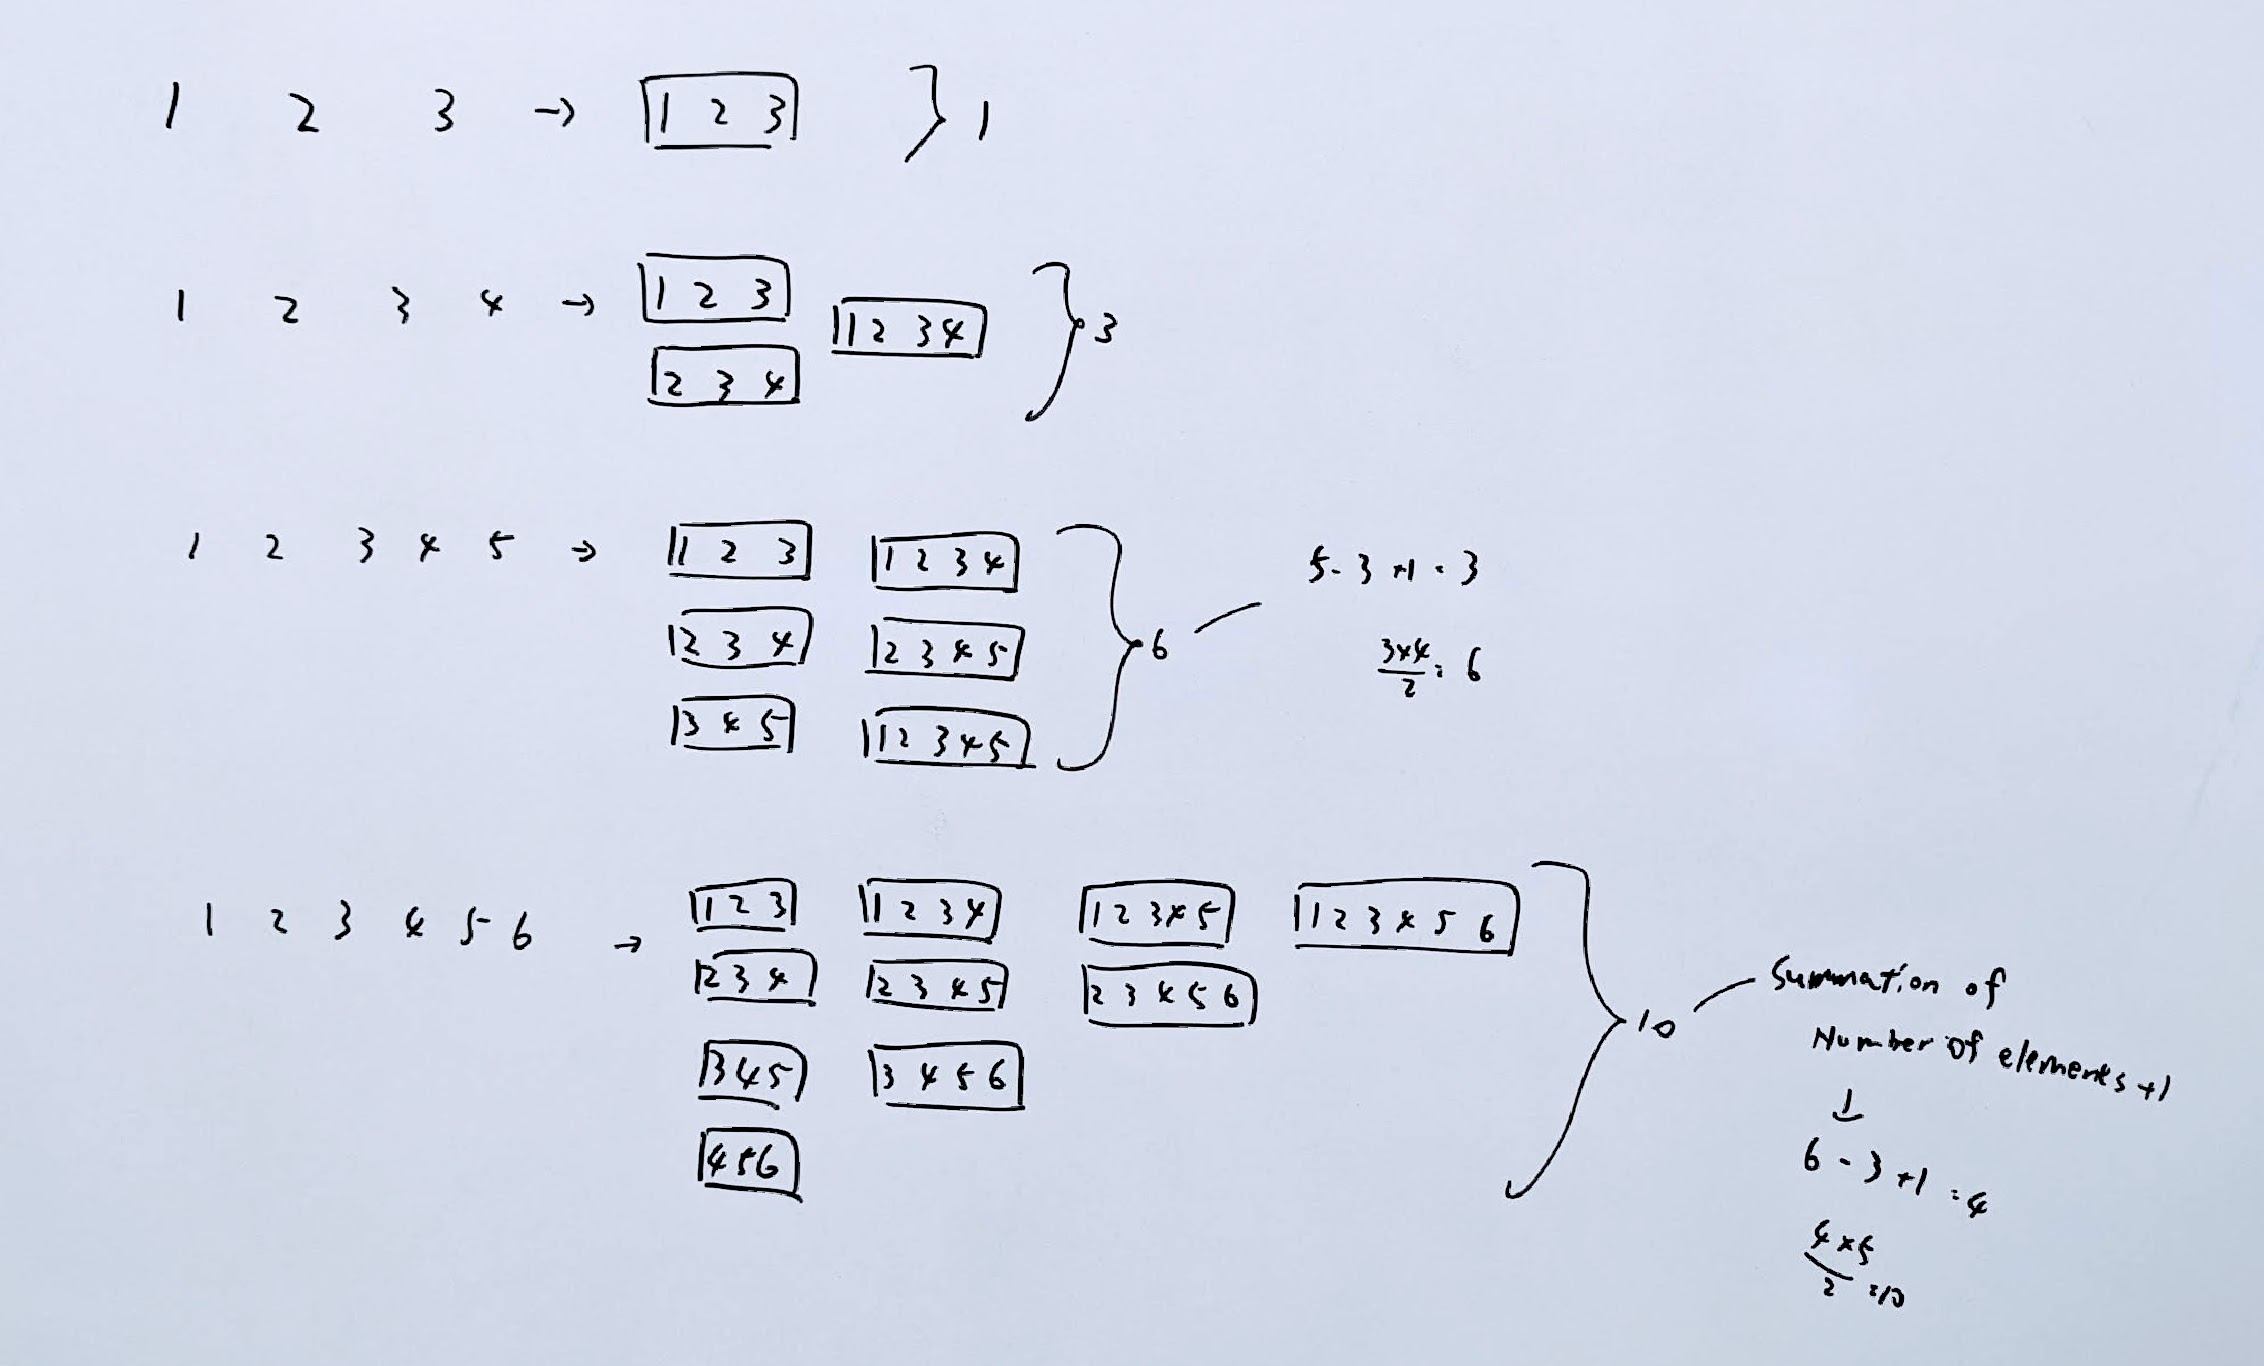 1 2 3 → 1 2 3 } 1
1 2 3 4 → 1 2 3
1 2 3 4 } 3
2 3 4
1 2 3 4 5 → 1 2 3 1 2 3 4
2 3 4 2 3 4 5 } 6
3 4 5 1 2 3 4 5
5-3+1=3
3×4/2=6
1 2 3 4 5 6 → 1 2 3 1 2 3 4 1 2 3 4 5 1 2 3 4 5 6
2 3 4 2 3 4 5 2 3 4 5 6 } 10
3 4 5 3 4 5 6
4 5 6
Summation of
Number of elements +1
↓
6-3+1=4
4×5/2=10